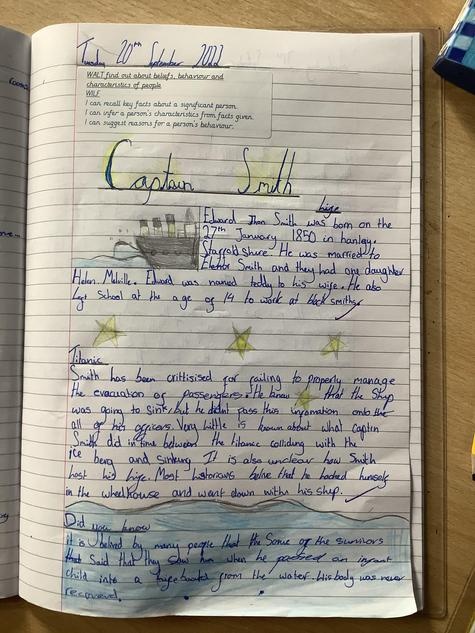 Tuesday 20th September 2022
WALT find out about beliefs, behaviour and
characteristics of people
WILF
I can recall key facts about a significant person.
I can infer a person's characteristics from facts given.
I can suggest reasons for a person's behaviour.
Captain Smith
life
Edward Jhon Smith was born on the
27th January 1850 in hanley,
Staffoldshire. He was married to
Eleanor Smith and they had one daughter
Helen Melville. Edward was named teddy to his wife. He also
Left School at the age of 14 to work at black smiths.
Titanic
Smith has been crittisised for failing to properly manage
the evacuation of passengers. He knew that the Ship
was going to Sink but he didnt pass this infomation onto the
all of his officers. Very Little is known about what captin
Smith did in time between the titanic colliding with the
ice berg and sinking. It is also unclear how Smith
lost his life. Most historians belive that he locked himself
in the wheelhouse and went down with his ship.
Did you know
it is belived by many people that the Some of the survivors
that Said that they saw him when he passed an infant
child into a from the water. His body was never
recovered.